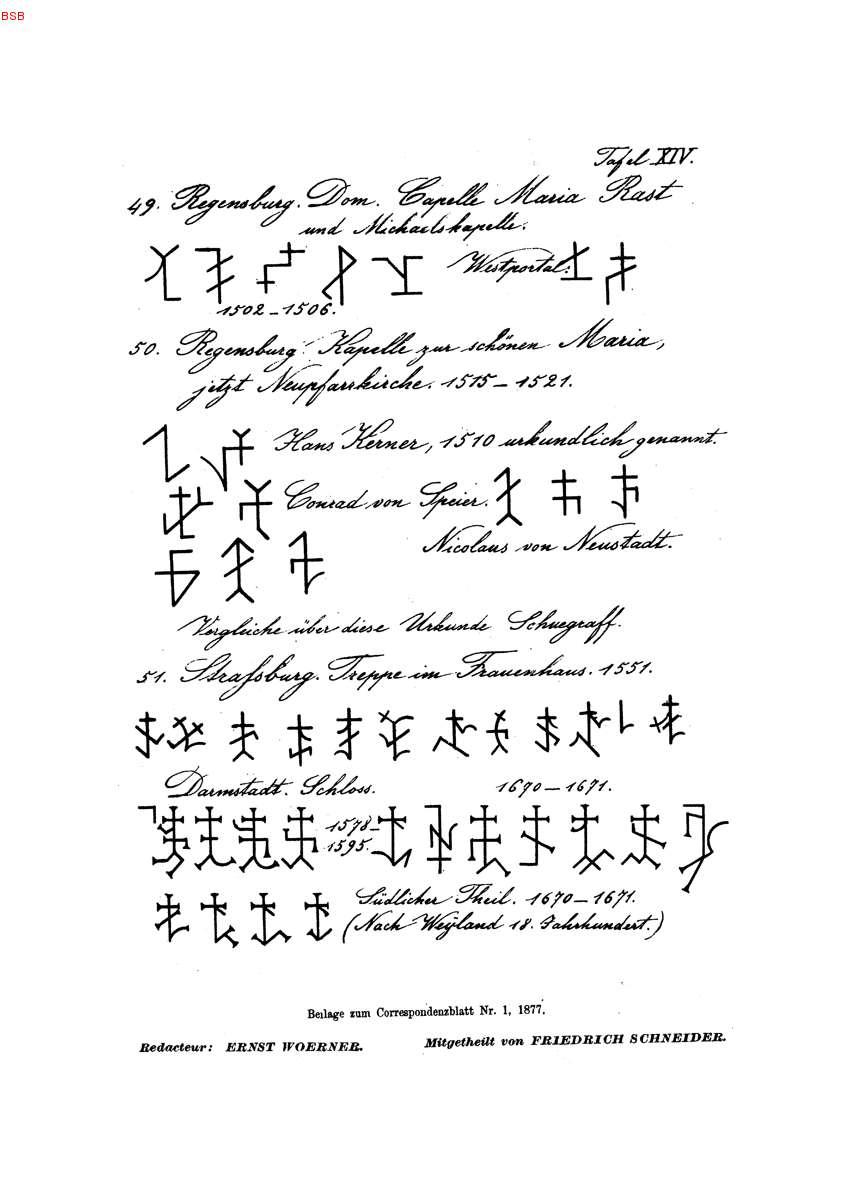 BSB
Tafel XIV.
49. Regensburg. Dom. Capelle Maria Rast
und Michaelskapelle.
Westportal:
1502–1506.
50. Regensburg. Kapelle zur schönen Maria,
jetzt Neupfarrkirche. 1515–1521.
Hans Kerner, 1510 urkundlich genannt.
Conrad von Speier.
Nicolaus von Neustadt.
Vergleiche über diese Urkunde Schuegraff.
51. Straſsburg. Treppe im Frauenhaus. 1551.
Darmstadt. Schloss. 1670–1671.
1578–
1595.
Südlicher Theil. 1670–1671.
(Nach Weÿland 18. Jahrhundert.)
Beilage zum Correspondenzblatt Nr. 1, 1877.
Redacteur: ERNST WOERNER. Mitgetheilt von FRIEDRICH SCHNEIDER.